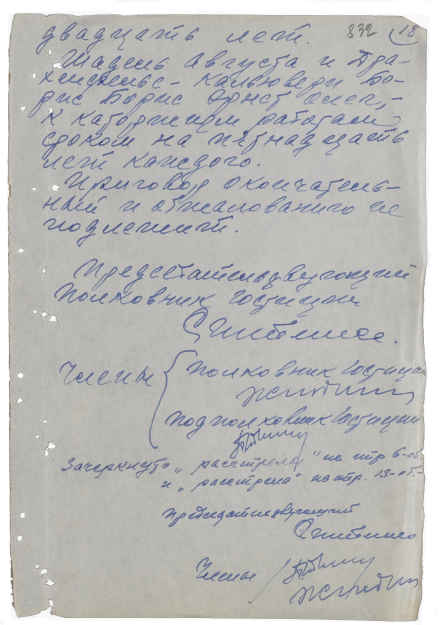 832 18
двадцать лет.
Шадель Августа и Дра-
хенфельс-Кальювери Бо-
рис Борис Эрнст Олег,-
к каторжным работам
сроком на пятнадцать
лет каждого.
Приговор окончатель-
ный и обжалованию не
подлежит.
Председательствующий
Полковник юстиции
Члены
Полковник юстиции
Подполковник юстиции
Зачеркнуто „расстрела" на стр 6-об.
и „расстрела" на стр. 13-об.-
Председательствующий
Члены